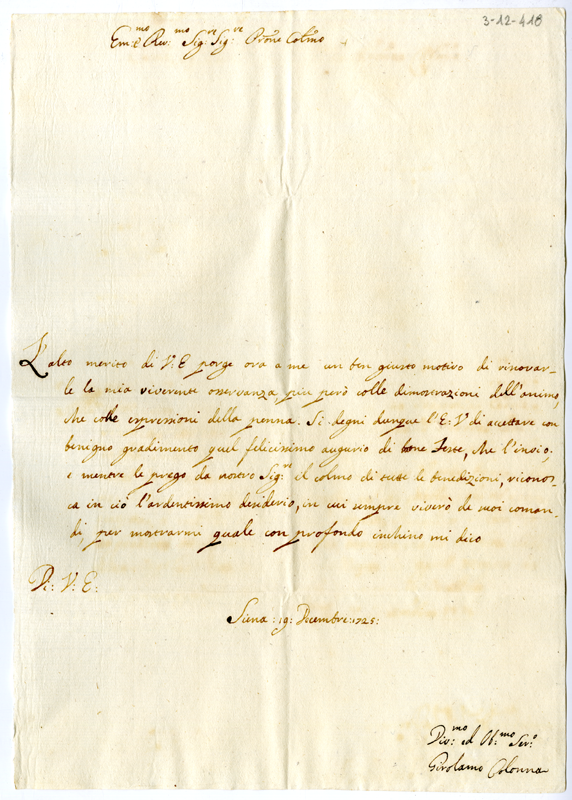 3-12-418
Em:mo e Rev:mo Sig:re Sig:re Prone Colmo
L'alto merito di V: E porge ora a me un ben giusto motivo di rinovar-
le la mia riverente osservanza, piu però colle dimostrazioni dell'animo,
che colle espressioni della penna. Si degni dunque l'E: V di accettare con
benigno gradimento quel felicissimo augurio di bone Feste, che l'invio;
e mentre le prego da nostro Sig:re il colmo di tutte le benedizioni, riconos-
ca in ciò l'ardentissimo desiderio, in cui sempre viverò de suoi coman-
di, per mostrarmi quale con profondo inchino mi dico
Di: V: E:
Siena: 19: Dicembre: 1725:
Div:mo ed Ob:mo Ser:o
Girolamo Colonna